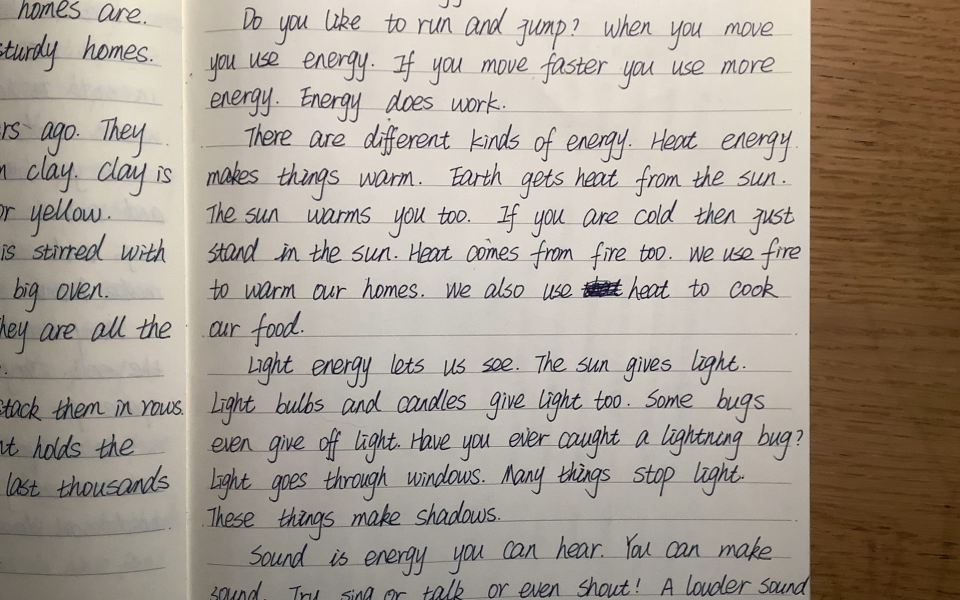 homes are.
sturdy homes.
rs ago. They
clay. clay is
or yellow.
is stirred with
big oven.
they are all the
stack them in rows.
holds the
last thousands
Do you like to run and jump? When you move
you use energy. If you move faster you use more
energy. Energy does work.
There are different kinds of energy. Heat energy
makes things warm. Earth gets heat from the sun.
The sun warms you too. If you are cold then just
stand in the sun. Heat comes from fire too. We use fire
to warm our homes. We also use heat to cook
our food.
Light energy lets us see. The sun gives light.
Light bulbs and candles give light too. Some bugs
even give off light. Have you ever caught a lightning bug?
Light goes through windows. Many things stop light.
These things make shadows.
Sound is energy you can hear. You can make
sound. Try sing or talk or even shout! A louder sound